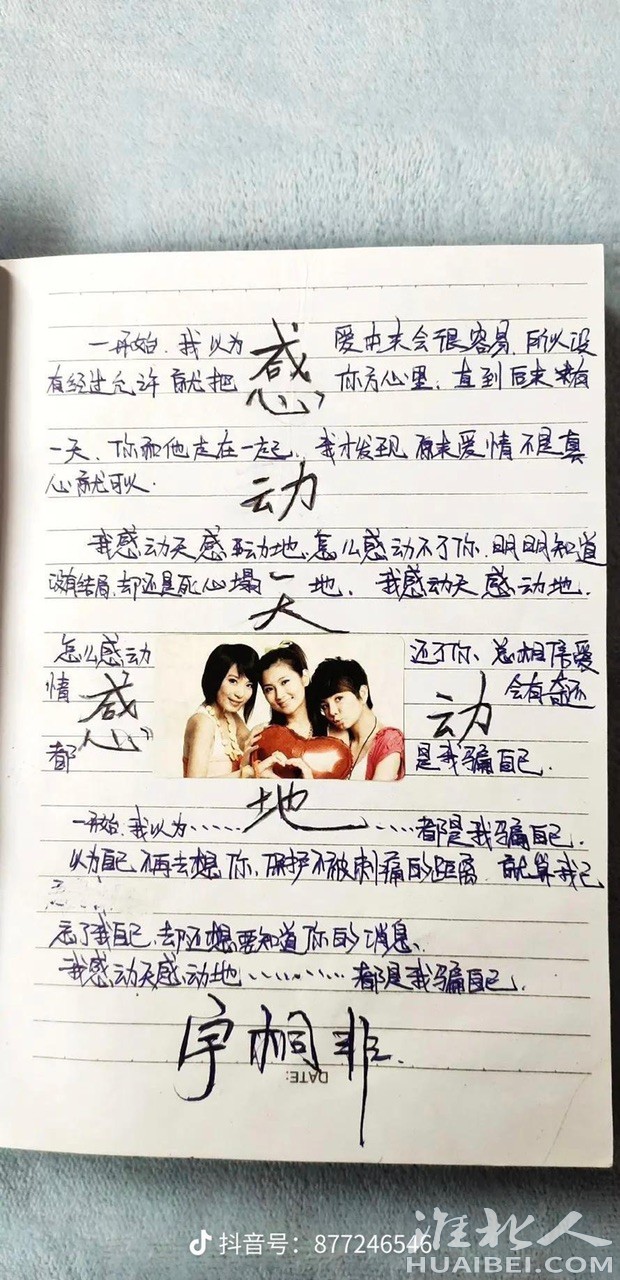 一开始，我以为 感 爱本来会很容易，所以没
有经过允许就把 你放心里，直到后来有
一天，你和他走在一起，我才发现原来爱情不是真
心就可以.
动
我感动天感动地，怎么感动不了你，明明知道
没有结局，却还是死心塌地，我感动天感动地.
天
怎么感动 还不了你、总相信爱
情 会有奇迹
感 动
都 是我骗自己.
地
一开始，我以为…… ……都是我骗自己.
以为自己不再去想你，保护不被刺痛的距离 就算我已
忘了我自己，却还想要知道你的消息、
我感动天感动地…………都是我骗自己.
宇桐非.
DATE:
抖音号：877246546
淮北人
HUAIBEI.COM